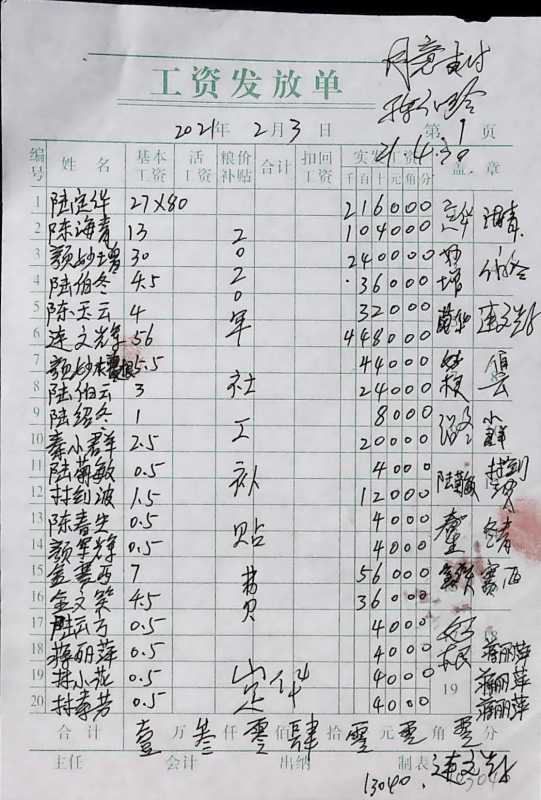 同意支付
工资发放单
21.4.30
2021年 2月 3日 第 1 页
编号 姓名 基本工资 活工资 粮价补贴 合计 扣回工资 实发 千百十元角分 盖章
1 陆定华 27×80 216000 定华
2 陈海青 13 104000 海青
3 颜妙增 30 240000 妙增
4 陆伯冬 4.5 36000 伯冬
5 陈玉云 4 32000
6 连文辉 56 448000 连文辉
7 颜妙根 5.5 44000 妙根
8 陆伯云 3 24000
9 陆绍冬 1 8000
10 秦小群 2.5 20000 小群
11 陆菊敏 0.5 4000 陆菊敏
12 村剑波 1.5 12000
13 陈春 0.5 4000
14 颜军辉 0.5 4000
15 金赛西 7 56000 赛西
16 金文 4.5 36000
17 陆云 0.5 4000 妙根
18 蒋丽萍 0.5 4000 蒋丽萍
19 小花 0.5 4000 19 蒋丽萍
20 0.5 4000 蒋丽萍
2020年社工补贴费
定华
合计 壹万叁仟零佰肆拾零元零角零分
主任 会计 出纳 制表 连文辉
13040.